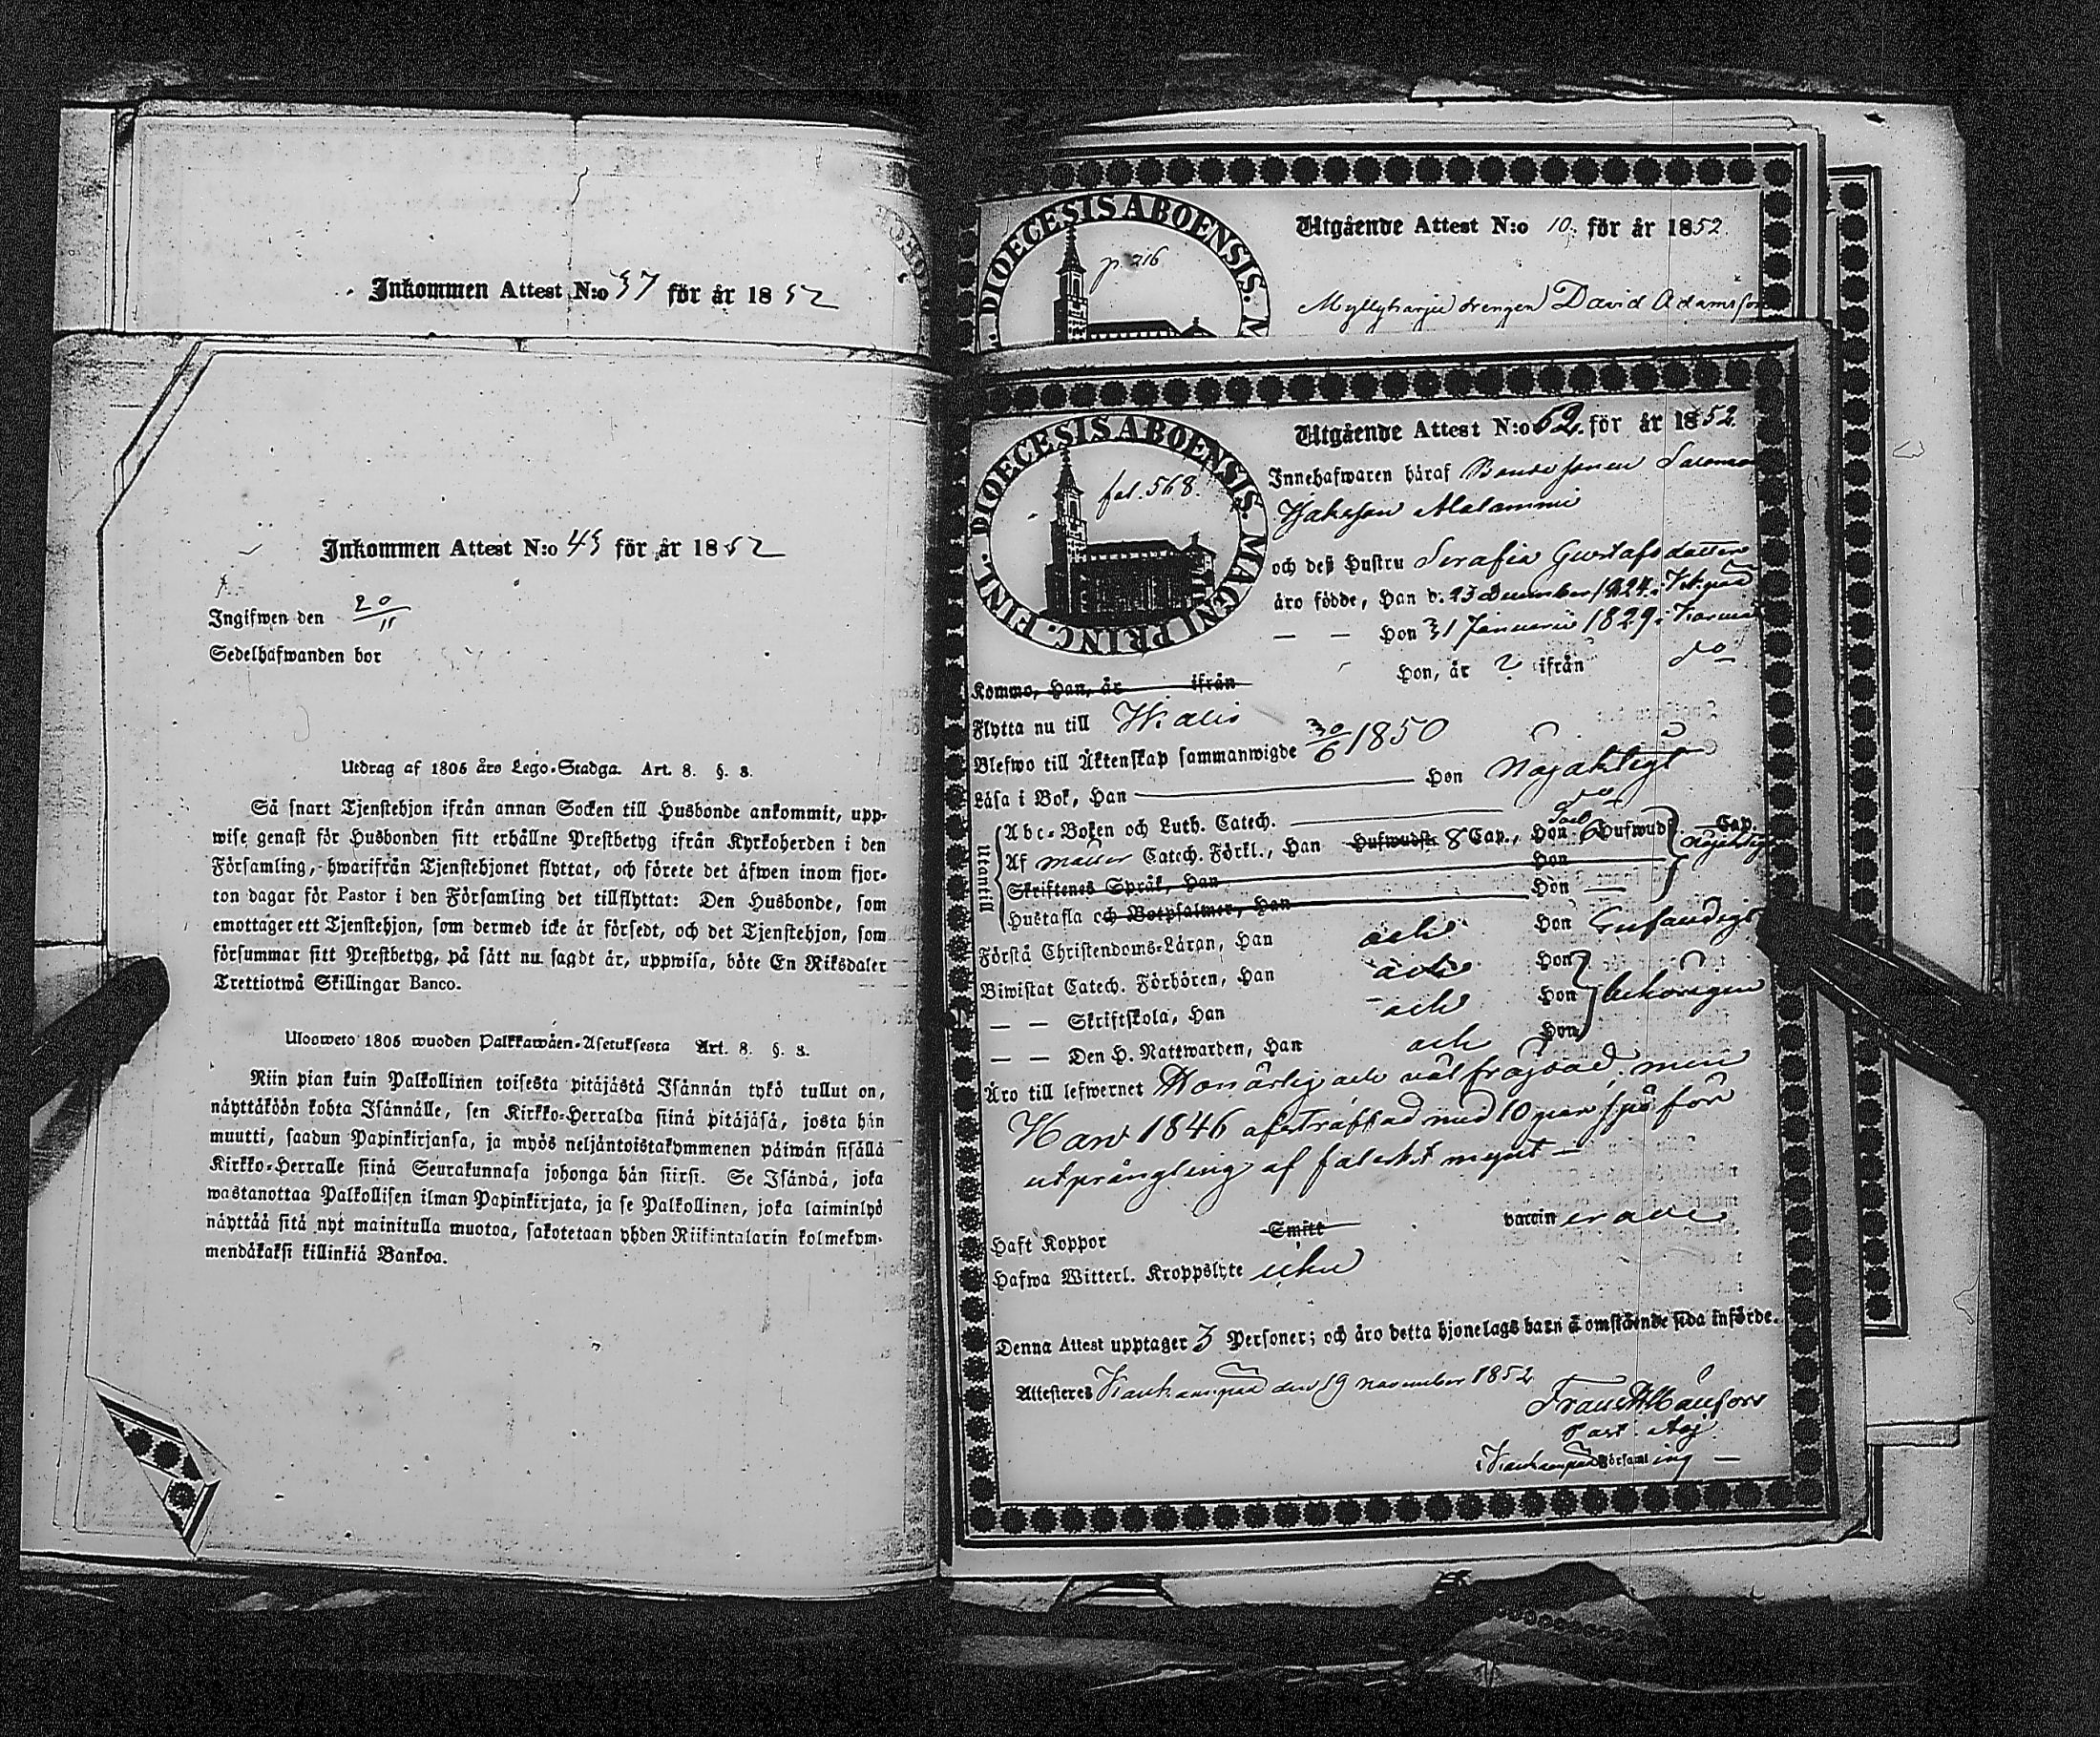 Inkommen Attest N:o 37 för år 1852
Inkommen Attest N:o 45 för år 1852
Ingifwen den 20/11
Sedelhafwanden bor
Utdrag af 1805 års Lego-Stadga. Art. 8. §. 8.
Så snart Tjenstehjon ifrån annan Socken till Husbonde ankommit, upp-
wise genast för Husbonden sitt erhållne Prestbetyg ifrån Kyrkoherden i den
Församling, hwarifrån Tjenstehjonet flyttat, och förete det äfwen inom fjor-
ton dagar för Pastor i den Församling det tillflyttat: Den Husbonde, som
emottager ett Tjenstehjon, som dermed icke är försedt, och det Tjenstehjon, som
försummar sitt Prestbetyg, på sätt nu sagdt är, uppwisa, böte En Riksdaler
Trettiotwå Skillingar Banco.
Ulosweto 1805 wuoden Palkkawäen-Asetuksesta Art. 8. §. 8.
Niin pian kuin Palkollinen toisesta pitäjästä Isännän tykö tullut on,
näyttäköön kohta Isännälle, sen Kirkko-Herralda siinä pitäjäsä, josta hän
muutti, saadun Papinkirjansa, ja myös neljäntoistakymmenen päiwän sisällä
Kirkko-Herralle siinä Seurakunnasa johonga hän siirsi. Se Isändä, joka
wastanottaa Palkollisen ilman Papinkirjata, ja se Palkollinen, joka laiminlyö
näyttää sitä nyt mainitulla muotoa, sakotetaan yhden Riikintalarin kolmekym-
mendäkaksi killinkiä Bankoa.
DIOECESIS ABOENSIS. M
p. 216
Utgående Attest N:o 10. för år 1852.
drengen David Adamsson
DIOECESIS ABOENSIS. MAGNI PRINC. FINL.
fol. 568.
Utgående Attest N:o 62. för år 1852.
Innehafwaren häraf Bondesonen Salomon
Alatammi
och deß Hustru Serafia Gustafsdotter
äro födde, Han d. 23 December 1824.
— — Hon 31 Januarii 1829.
Kommo, Han, år ifrån Hon, år ? ifrån do
Flytta nu till
Blefwo till Äktenskap sammanwigde 30/6 1850
Läsa i Bok, Han Hon Nöjaktigt
Utantill
Abc-Boken och Luth. Catech. do
Af Catech. Förkl., Han Hufwudst 8 Cap., Hon 6 Hufwudst Cap. nöjaktigt
Skriftenes Språk, Han Hon
Hustafla och Botpsalmer, Han Hon
Förstå Christendoms-Läran, Han och Hon
Biwistat Catech. Förhören, Han och Hon behörigen
— — Skriftskola, Han och Hon
— — Den H. Nattwarden, Han och Hon
Äro till lefwernet Hon ärlig och väl frägdad, men
Han 1846 afstraffad med 10 par spö för
utprångling af falskt mynt —
Haft Koppor Smitt vaccin
Hafwa Witterl. Kroppslyte icke
Denna Attest upptager 3 Personer; och äro detta hjonelags barn å omstående sida införde.
Attesteres Kankaanpää den 19 november 1852
Past. Adj.
i Kankaanpää Församling —